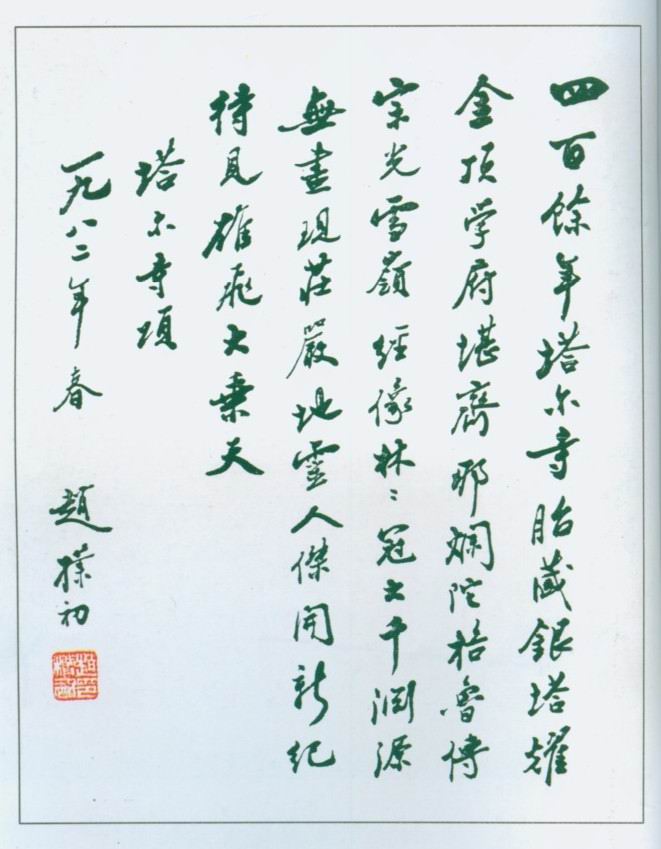 四百餘年塔尔寺胎藏銀塔耀
金頂学府堪齊那爛陀格魯傳
宗光雪嶺經像林〻冠大千淵源
無盡現莊嚴地靈人傑開新紀
待見雄飛大乗天
塔尔寺頌
一九八二年春 趙樸初